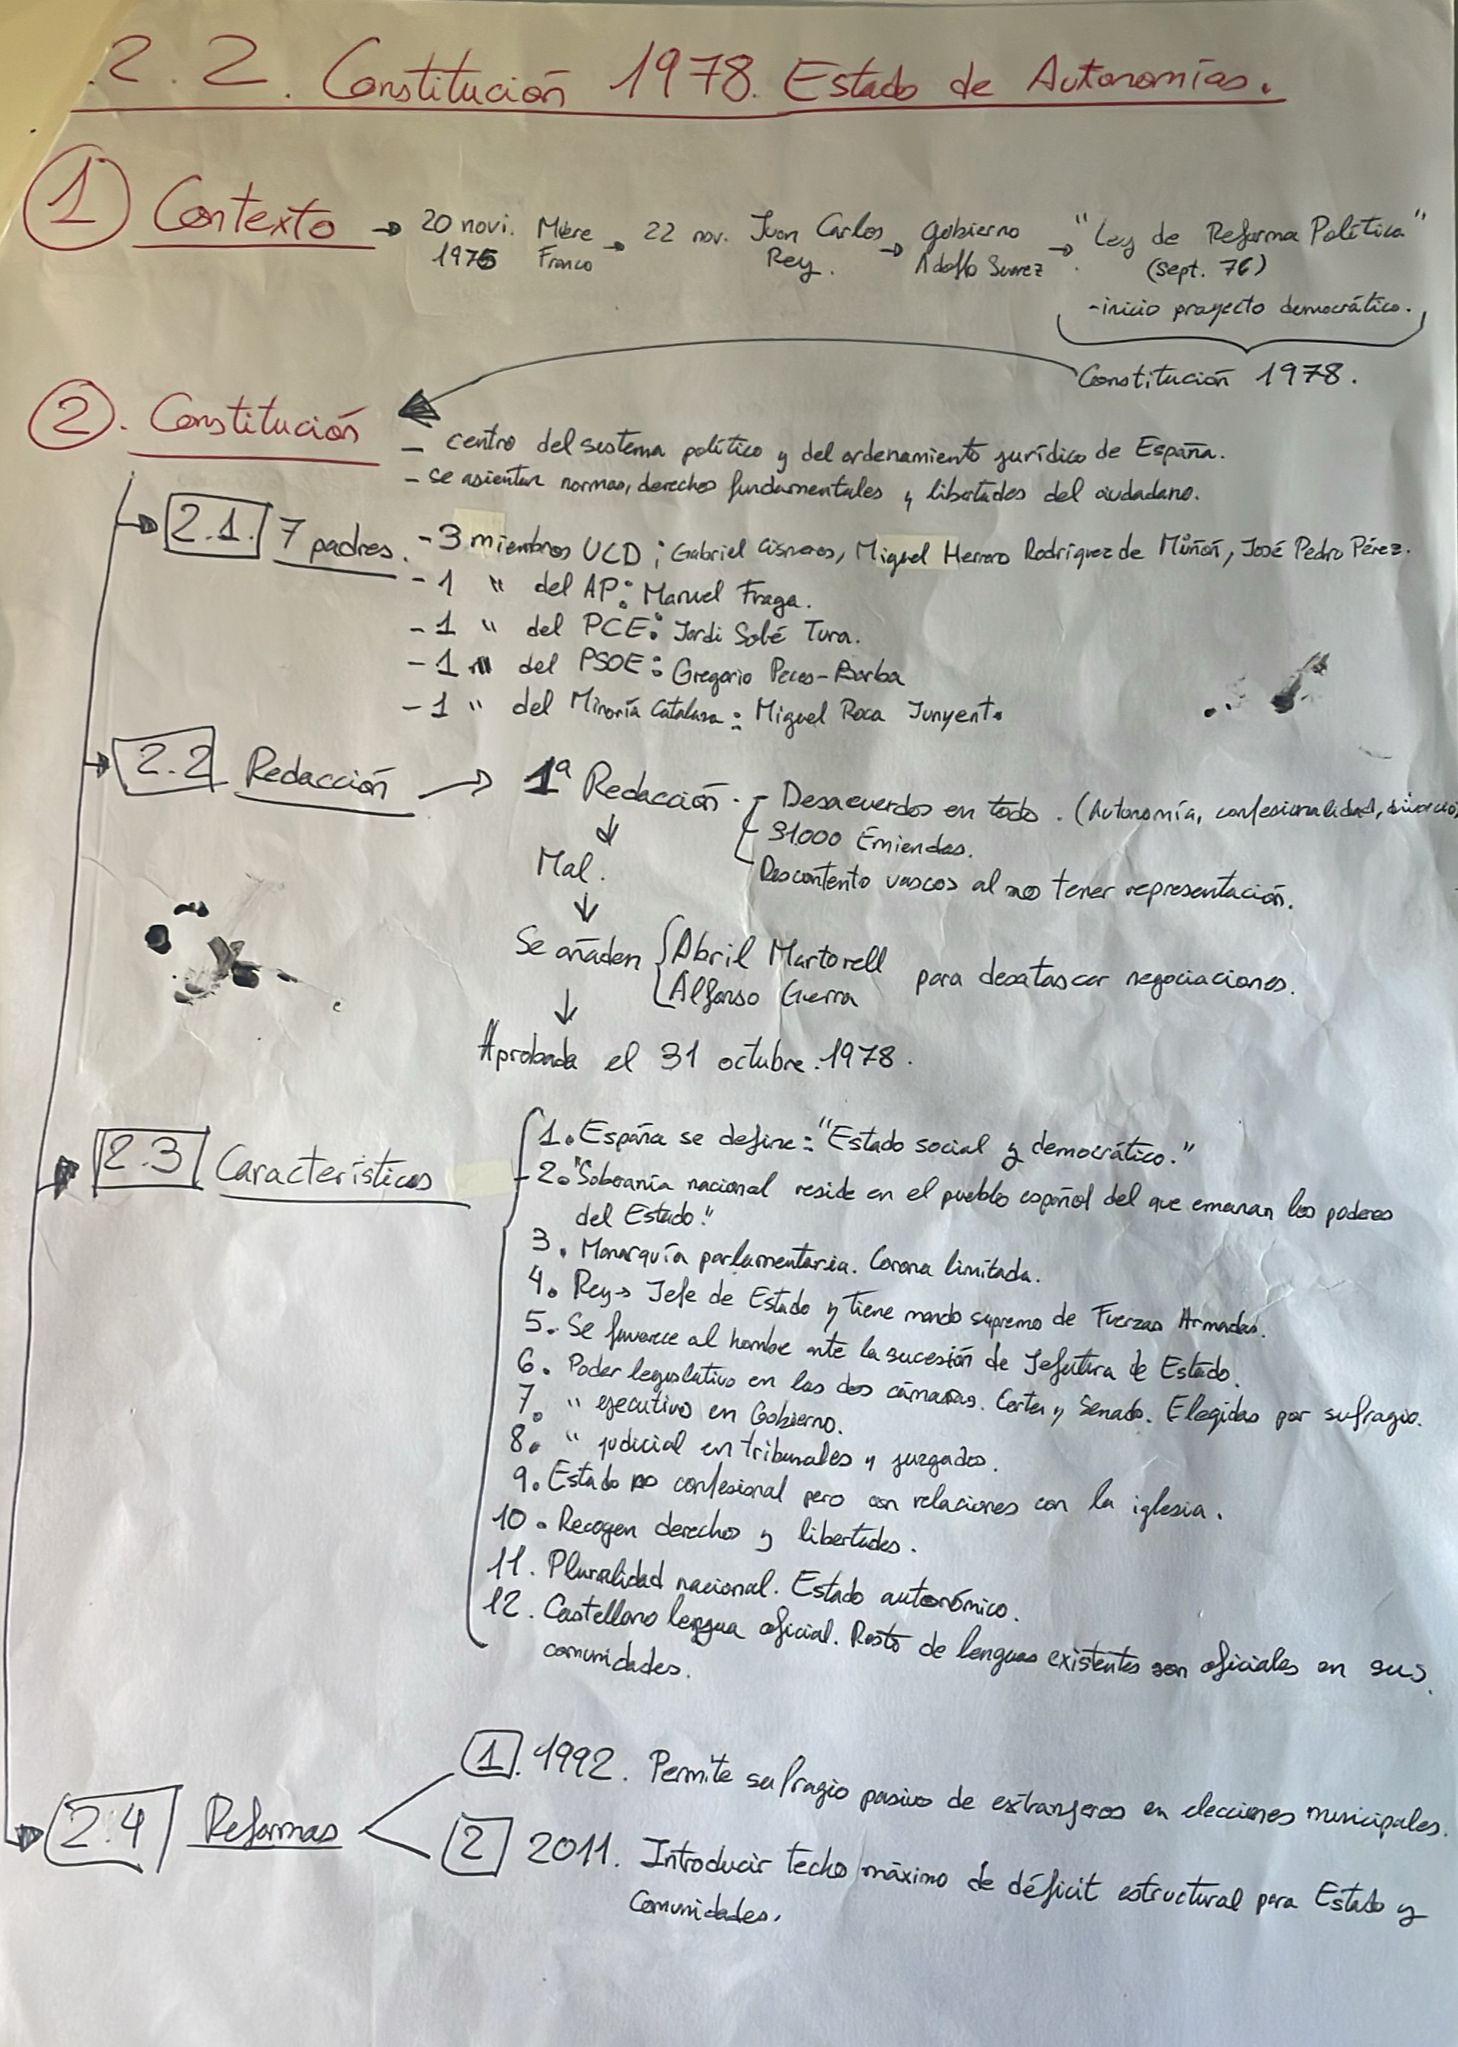 2.2. Constitución 1978. Estado de Autonomías.
1 Contexto → 20 novi. 1975 Muere Franco → 22 nov. Juan Carlos Rey. → Gobierno Adolfo Suarez → "Ley de Reforma Política" (sept. 76)
- inicio proyecto democrático.
Constitución 1978.
2. Constitución
- centro del sistema político y del ordenamiento jurídico de España.
- se asientan normas, derechos fundamentales y libertades del ciudadano.
2.1. 7 padres. - 3 miembros UCD; Gabriel Cisneros, Miguel Herrero Rodríguez de Miñón, José Pedro Pérez.
- 1 " del AP: Manuel Fraga.
- 1 " del PCE: Jordi Solé Tura.
- 1 " del PSOE: Gregorio Peces-Barba
- 1 " del Minoría Catalana: Miguel Roca Junyent.
2.2 Redacción → 1ª Redacción. - Desacuerdos en todo. (Autonomía, confesionalidad, divorcio)
31.000 Emiendas.
Mal.
Descontento vascos al no tener representación.
Se añaden Abril Martorell Alfonso Guerra para desatascar negociaciones.
Aprobada el 31 octubre. 1978.
2.3 Características
1. España se define: "Estado social y democrático."
2. "Soberanía nacional reside en el pueblo español del que emanan los poderes
del Estado."
3. Monarquía parlamentaria. Corona limitada.
4. Rey → Jefe de Estado y tiene mando supremo de Fuerzas Armadas.
5. Se favorece al hombre ante la sucesión de Jefatura de Estado.
6. Poder legislativo en las dos cámaras. Cortes y Senado. Elegidas por sufragio.
7. " ejecutivo en Gobierno.
8. " judicial en tribunales y juzgados.
9. Estado no confesional pero con relaciones con la iglesia.
10. Recogen derechos y libertades.
11. Pluralidad nacional. Estado autonómico.
12. Castellano lengua oficial. Resto de lenguas existentes son oficiales en sus
comunidades.
2.4 Reformas
1. 1992. Permite sufragio pasivo de extranjeros en elecciones municipales.
2 2011. Introducir techo máximo de déficit estructural para Estado y
Comunidades.